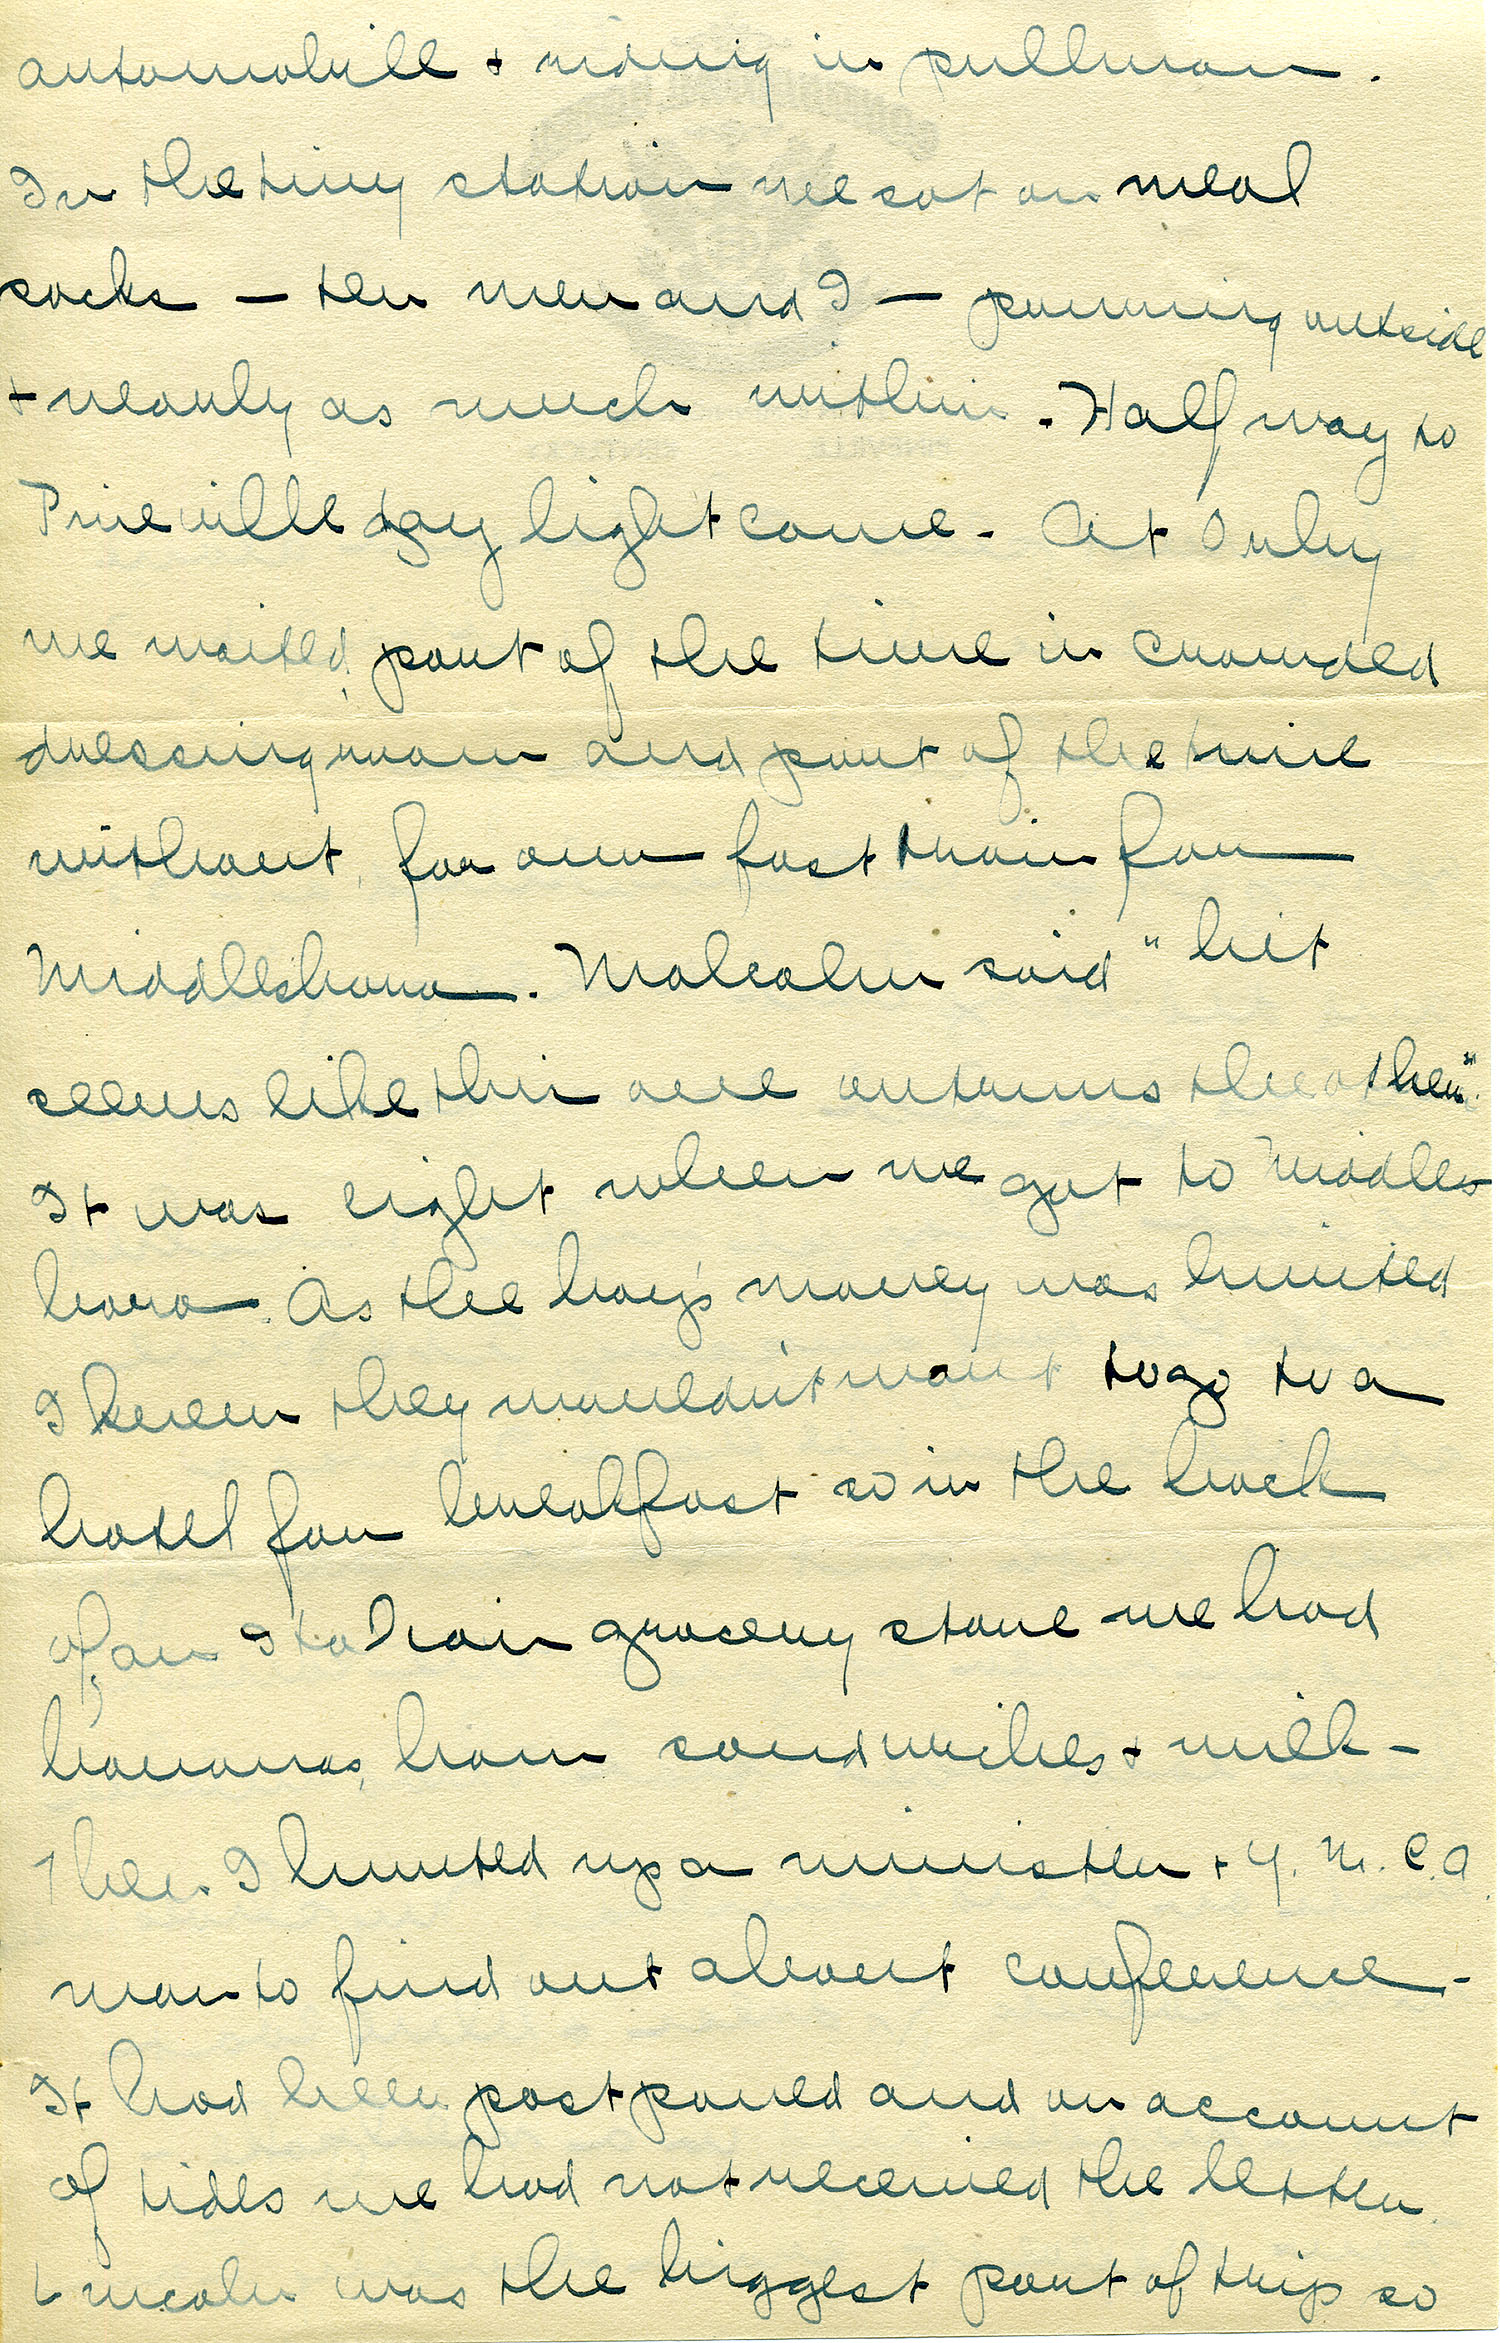 automobile + riding in pullman.
In the tiny station we sat on meal
sacks — ten men and I — pouring outside
+ nearly as much within. Half way to
Pineville day light came. At Orby
we waited part of the time in crowded
dressing room and part of the time
without, for our fast train for
Middlesboro. Malcolm said "hit
seems like this one outruns the other".
It was eight when we got to Middles
boro. As the boy's money was limited
I knew they wouldn't want to go to a
hotel for breakfast so in the back
of an Italian grocery store we had
bananas, ham sandwiches + milk –
Then I hunted up a minister + Y. M. C. A.
man to find out about conference –
It had been postponed and on account
of tides we had not received the letter.
Lincoln was the biggest part of trip so